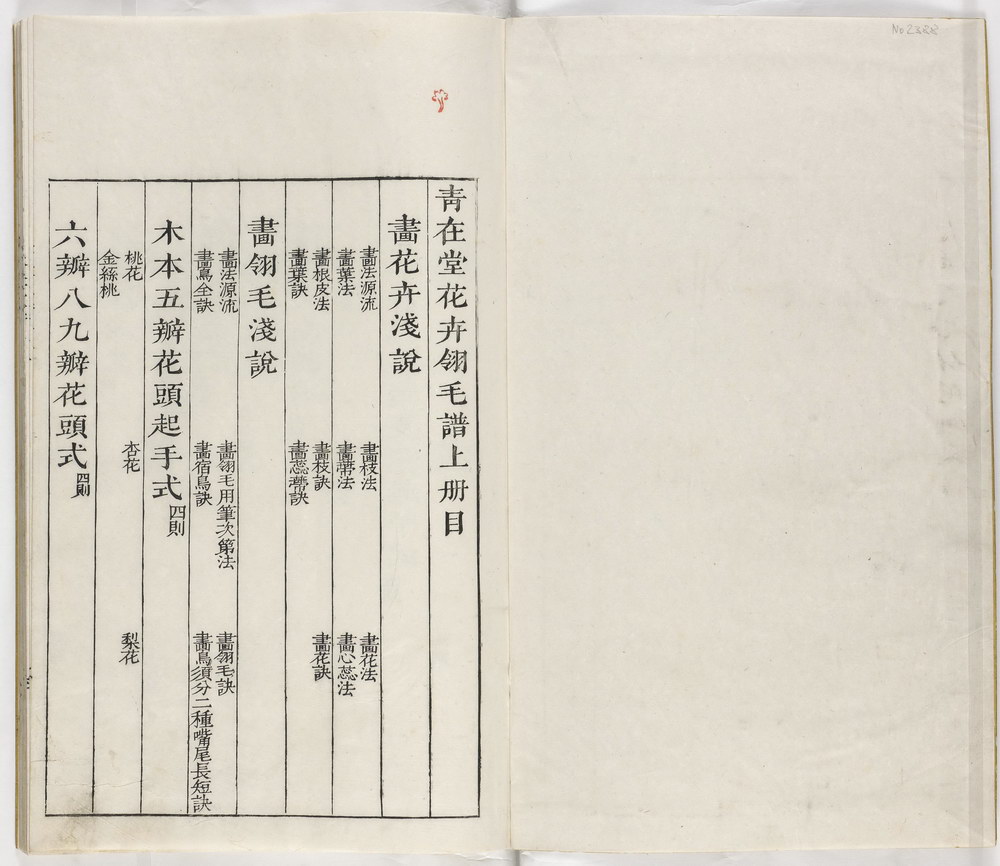 青在堂花卉翎毛譜上册目
畫花卉淺說
畫法源流 畫枝法 畫花法
畫葉法 畫蔕法 畫心蕊法
畫根皮法 畫枝訣 畫花訣
畫葉訣 畫蕊蔕訣
畫翎毛淺說
畫法源流 畫翎毛用筆次第法 畫翎毛訣
畫鳥全訣 畫宿鳥訣 畫鳥須分二種嘴尾長短訣
木本五瓣花頭起手式 四則
桃花 杏花 梨花
金絲桃
六瓣八九瓣花頭式 四則
No 2888